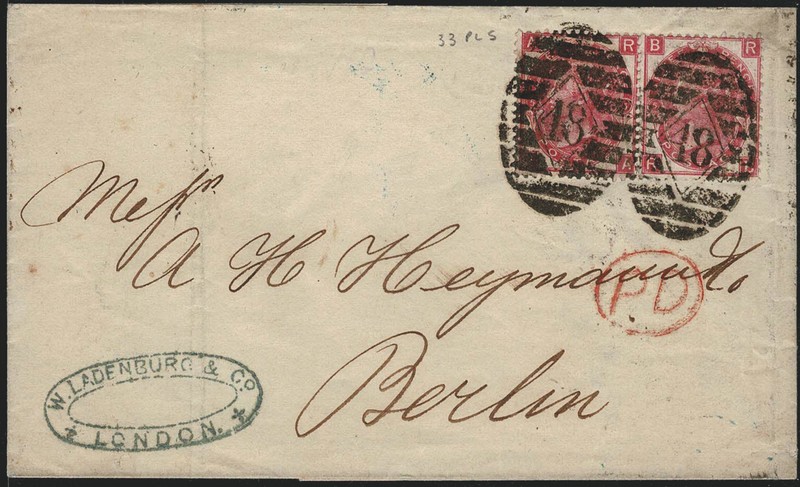 33 PLS
A R B R
48 48
A R
Messrs
A H Heymann & Co
PD
Berlin
W. LADENBURG & Co.
LONDON.